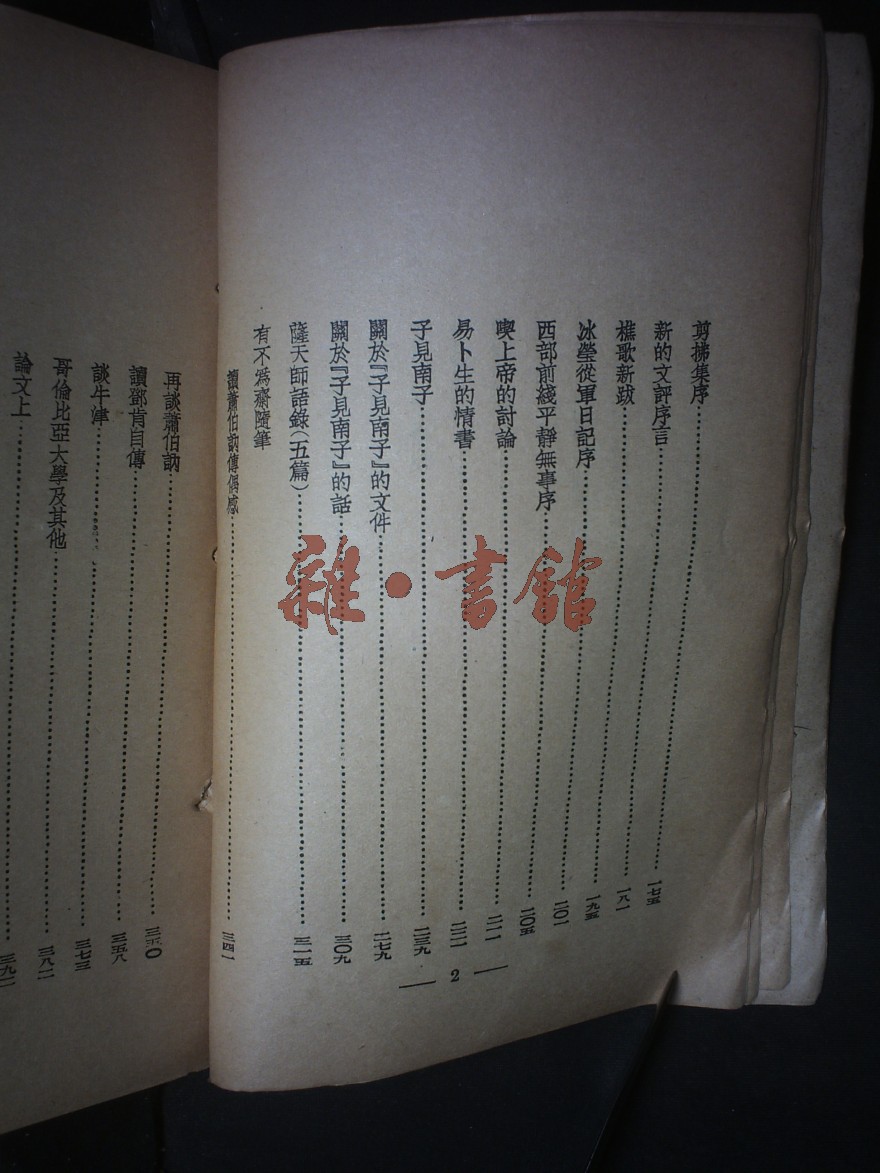 剪拂集序……一七五
新的文評序言……一八一
樵歌新跋……一九五
冰瑩從軍日記序……二〇一
西部前綫平靜無事序……二〇五
喫上帝的討論……二一一
易卜生的情書……二二一
子見南子……二三九
關於『子見南子』的文件……二七九
關於『子見南子』的話……三〇九
薩天師語錄(五篇)……三一五
有不爲齋隨筆
讀蕭伯訥傳偶感……三四一
— 2 —
再談蕭伯訥……三五〇
讀鄧肯自傳……三五八
談牛津……三七三
哥倫比亞大學及其他……三八二
論文上……
雜·書館